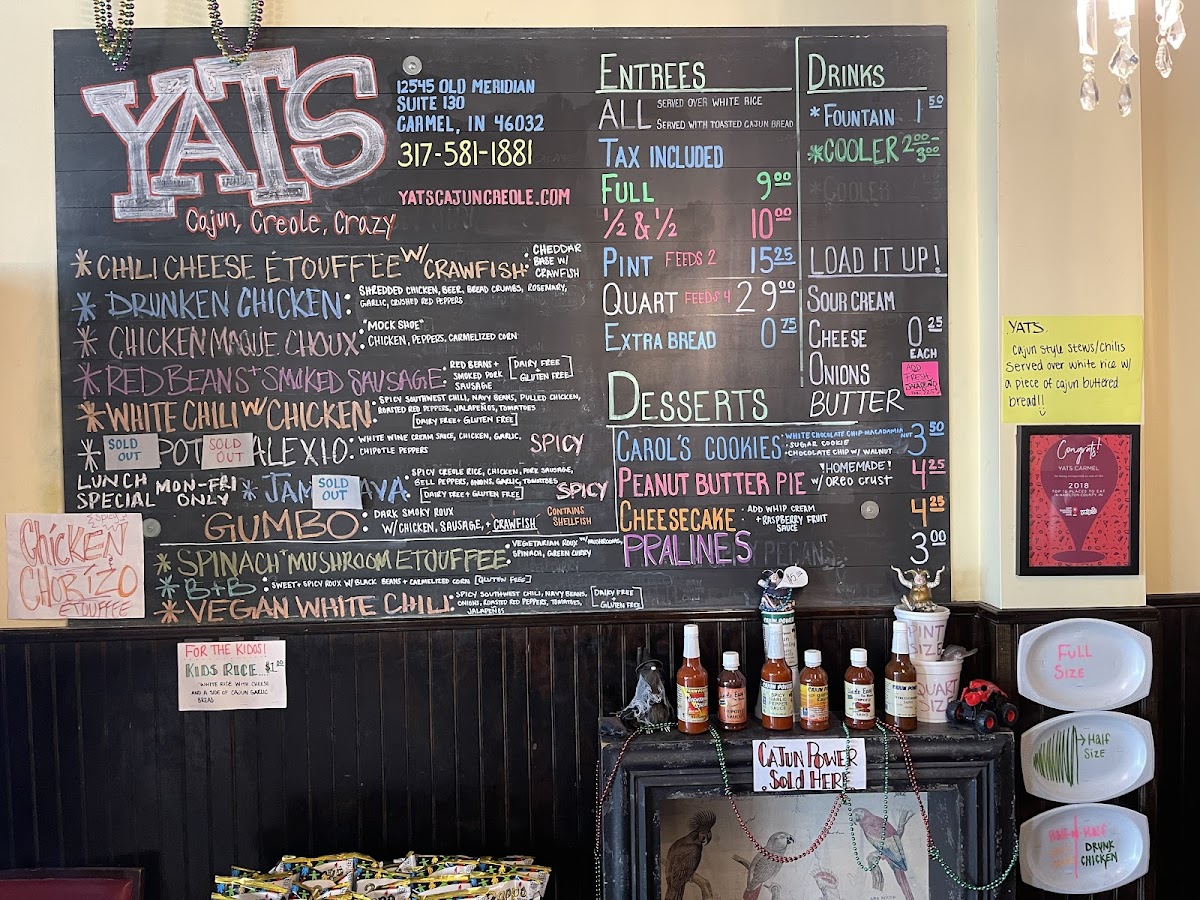 YATS
Cajun, Creole, Crazy
12545 OLD MERIDIAN
SUITE 130
CARMEL, IN 46032
317-581-1881
YATSCAJUNCREOLE.COM
* CHILI CHEESE ÉTOUFFEE W/ CRAWFISH: CHEDDAR
BASE W/
CRAWFISH
* DRUNKEN CHICKEN: SHREDDED CHICKEN, BEER, BREAD CRUMBS, ROSEMARY,
GARLIC, CRUSHED RED PEPPERS
* CHICKEN MAQUE CHOUX: "MOCK SHOE"
CHICKEN, PEPPERS, CARMELIZED CORN
* RED BEANS + SMOKED SAUSAGE: RED BEANS +
SMOKED PORK
SAUSAGE
[DAIRY FREE +
GLUTEN FREE]
* WHITE CHILI W/ CHICKEN: SPICY SOUTHWEST CHILI, NAVY BEANS, PULLED CHICKEN,
ROASTED RED PEPPERS, JALAPEÑOS, TOMATOES
[DAIRY FREE + GLUTEN FREE]
* SOLD OUT POT SOLD OUT ALEXIO: WHITE WINE CREAM SAUCE, CHICKEN, GARLIC,
CHIPOTLE PEPPERS
SPICY
LUNCH SPECIAL MON-FRI ONLY * JAM SOLD OUT AYA: SPICY CREOLE RICE, CHICKEN, PORK SAUSAGE,
BELL PEPPERS, ONIONS, GARLIC, TOMATOES
[DAIRY FREE + GLUTEN FREE]
SPICY
GUMBO: DARK SMOKY ROUX
W/ CHICKEN, SAUSAGE, + CRAWFISH
CONTAINS
SHELLFISH
* SPINACH + MUSHROOM ETOUFFEE: VEGETARIAN ROUX W/ MUSHROOMS,
SPINACH, GREEN CURRY
* B+B: SWEET + SPICY ROUX W/ BLACK BEANS + CARMELIZED CORN [GLUTEN FREE]
* VEGAN WHITE CHILI: SPICY SOUTHWEST CHILI, NAVY BEANS,
ONIONS, ROASTED RED PEPPERS, TOMATOES,
JALAPEÑOS
[DAIRY FREE +
GLUTEN FREE]
ENTREES
ALL SERVED OVER WHITE RICE
SERVED WITH TOASTED CAJUN BREAD
TAX INCLUDED
FULL 9.00
½ & ½ 10.00
PINT FEEDS 2 15.25
QUART FEEDS 4 29.00
EXTRA BREAD 0.75
DESSERTS
CAROL'S COOKIES • WHITE CHOCOLATE CHIP MACADAMIA NUT 3.50
• SUGAR COOKIE
• CHOCOLATE CHIP W/ WALNUT
PEANUT BUTTER PIE "HOMEMADE! 4.25
W/ OREO CRUST
CHEESECAKE • ADD WHIP CREAM 4.25
+ RASPBERRY FRUIT
SAUCE
PRALINES PECANS 3.00
DRINKS
* FOUNTAIN 1.50
* COOLER 2.00-3.00
COOLER
LOAD IT UP!
SOUR CREAM
CHEESE 0.25
EACH
ONIONS
BUTTER
ADD
FRESH
JALAPEÑO
YATS
Cajun Style Stews/Chilis
Served over white rice w/
a piece of cajun buttered
bread!!
Congrats!
YATS CARMEL
2018
TOP 10 PLACES TO EAT
IN HAMILTON COUNTY, IN
SPICY
CHICKEN
CHORIZO
ETOUFFEE
FOR THE KIDOS!
KIDS RICE...$1.00
WHITE RICE WITH CHEESE
AND A SIDE OF CAJUN GARLIC
BREAD
PINT
SIZE
QUART
SIZE
CAJUN POWER
SPICY
GARLIC
PEPPER
SAUCE
CAJUN POWER
SOLD HERE
FULL
SIZE
Half
Size
HALF-N-HALF
DRUNK
CHICKEN